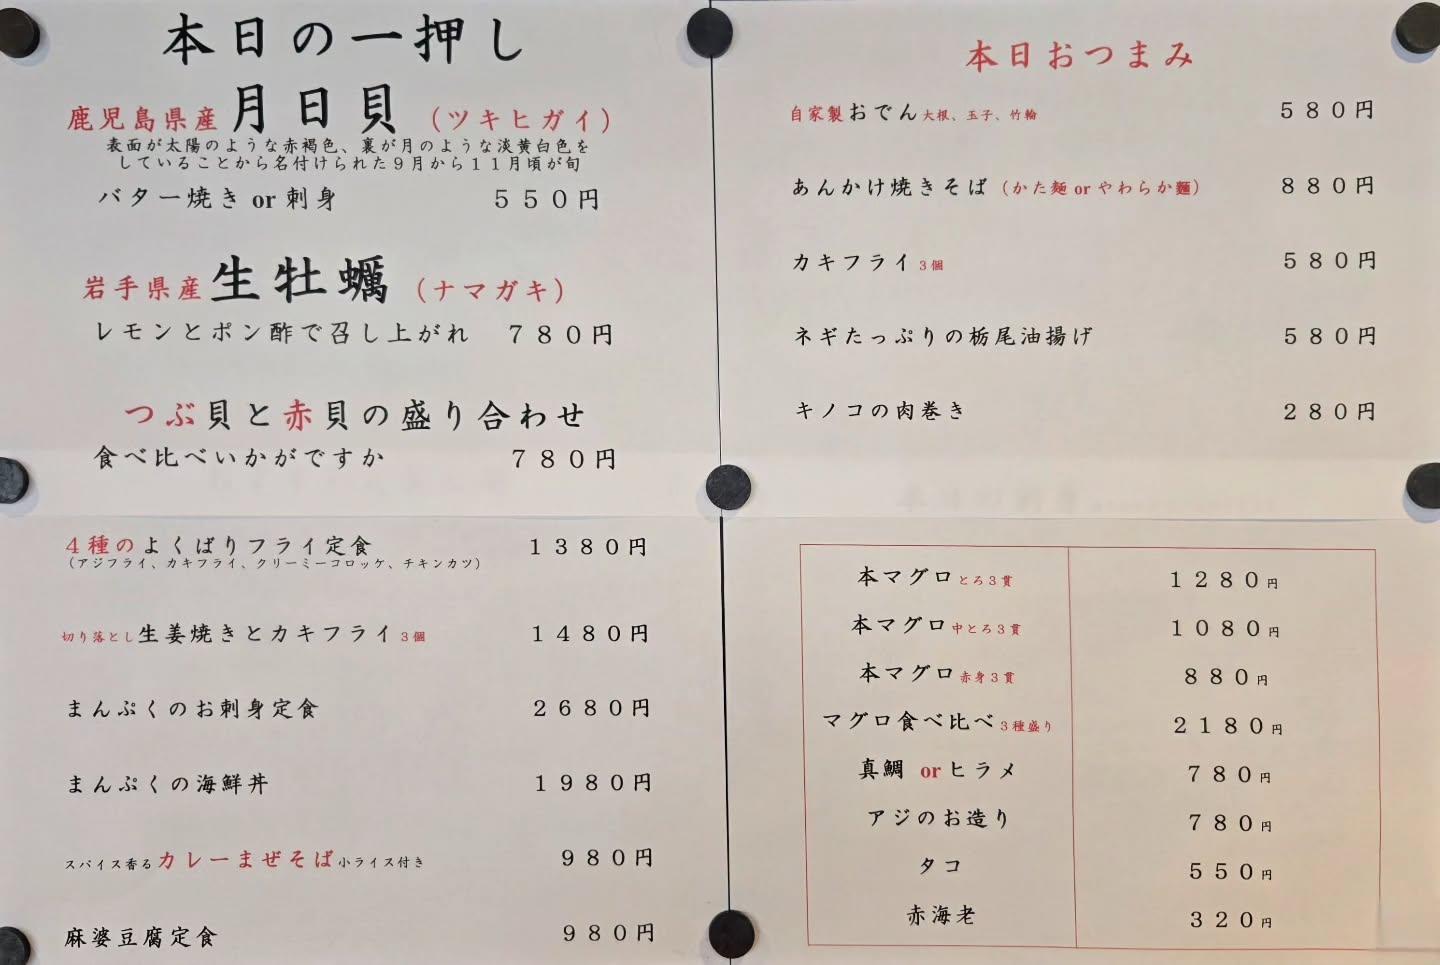 本日の一押し
鹿児島県産月日貝（ツキヒガイ）
表面が太陽のような赤褐色、裏が月のような淡黄白色を
していることから名付けられた９月から１１月頃が旬
バター焼き or 刺身 ５５０円
岩手県産生牡蠣（ナマガキ）
レモンとポン酢で召し上がれ ７８０円
つぶ貝と赤貝の盛り合わせ
食べ比べいかがですか ７８０円
本日おつまみ
自家製おでん大根、玉子、竹輪 ５８０円
あんかけ焼きそば（かた麺 or やわらか麺） ８８０円
カキフライ３個 ５８０円
ネギたっぷりの栃尾油揚げ ５８０円
キノコの肉巻き ２８０円
４種のよくばりフライ定食 １３８０円
（アジフライ、カキフライ、クリーミーコロッケ、チキンカツ）
切り落とし生姜焼きとカキフライ３個 １４８０円
まんぷくのお刺身定食 ２６８０円
まんぷくの海鮮丼 １９８０円
スパイス香るカレーまぜそば小ライス付き ９８０円
麻婆豆腐定食 ９８０円
本マグロとろ３貫 １２８０円
本マグロ中とろ３貫 １０８０円
本マグロ赤身３貫 ８８０円
マグロ食べ比べ３種盛り ２１８０円
真鯛 or ヒラメ ７８０円
アジのお造り ７８０円
タコ ５５０円
赤海老 ３２０円